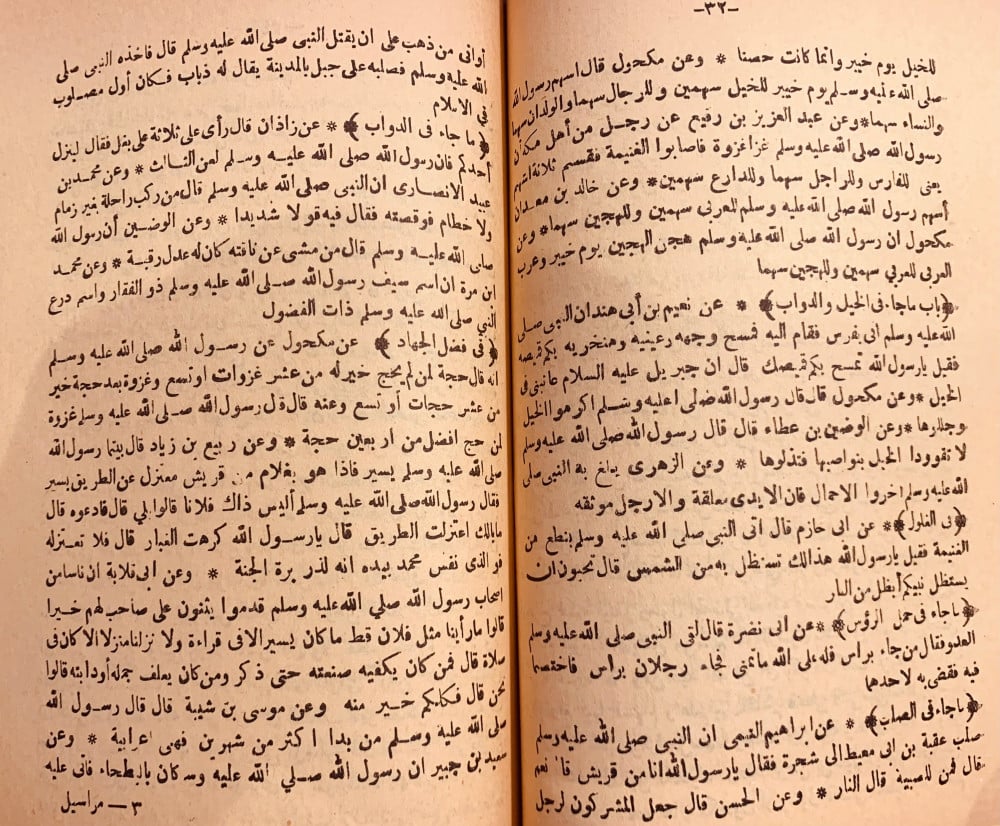 -٣٢-
للخيل يوم خيبر وانما كانت حصنا * وعن مكحول قال اسهم رسول الله
صلى الله عليه وسلم يوم خيبر للخيل سهمين وللرجال سهما والولدان سهما
والنساء سهما * وعن عبد العزيز بن رفيع عن رجل من أهل مكة أن
رسول الله صلى الله عليه وسلم غزا غزوة فاصابوا الغنيمة فقسم ثلاثة اسهم
يعنى للفارس وللراجل سهما وللدارع سهمين * وعن خالد بن معدان
أسهم رسول الله صلى الله عليه وسلم للعربى سهمين وللهجين سهما * وعن
مكحول ان رسول الله صلى الله عليه وسلم هجن الهجين يوم خيبر وعرب
العربى للعربى سهمين وللهجين سهما
﴿باب ماجاء فى الخيل والدواب﴾ * عن نعيم بن أبى هند ان النبى صلى
الله عليه وسلم اتى بفرس فقام اليه فمسح وجهه وعينيه ومنخريه بكم قميصه
فقيل يا رسول الله تمسح بكم قميصك قال ان جبريل عليه السلام عاتبنى فى
الخيل * وعن مكحول قال قال رسول الله صلى الله عليه وسلم اكرموا الخيل
وجللوها * وعن الوضين بن عطاء قال قال رسول الله صلى الله عليه وسلم
لا تقودوا الخيل بنواصيها فتذلوها * وعن الزهرى يبلغ به النبى صلى
الله عليه وسلم اخروا الاحمال فان الايدى معلقة والارجل موثقه
﴿فى الغلول﴾ * عن ابى حازم قال اتى النبى صلى الله عليه وسلم بنطع من
الغنيمة فقيل يا رسول الله هذا لك تستظل به من الشمس قال تحبون ان
يستظل نبيكم بظل من النار
﴿ماجاء فى حمل الرؤس﴾ * عن ابى نضرة قال لقى النبى صلى الله عليه وسلم
العدو فقال من جاء براس فله على الله ماتمنى فجاء رجلان براس فاختصما
فيه فقضى به لاحدهما
﴿ماجاء فى الصلب﴾ * عن ابراهيم التيمى ان النبى صلى الله عليه وسلم
صلب عقبة بن ابى معيط الى شجرة فقال يا رسول الله انا من قريش قال نعم
قال فمن للصبية قال النار * وعن الحسن قال جعل المشركون لرجل
أواقى من ذهب على ان يقتل النبى صلى الله عليه وسلم قال فاخذه النبى صلى
الله عليه وسلم فصلبه على جبل بالمدينة يقال له ذباب فكان أول مصلوب
فى الاسلام
﴿ما جاء فى الدواب﴾ * عن زاذان قال رأى على ثلاثة على بغل فقال لينزل
أحدكم فان رسول الله صلى الله عليه وسلم لعن الثالث * وعن محمد بن
عبيد الانصارى ان النبى صلى الله عليه وسلم قال من ركب راحلة بغير زمام
ولا خطام فوقصته فقال فيه قولا شديدا * وعن الوضين أن رسول الله
صلى الله عليه وسلم قال من مشى عن ناقته كان له عدل رقبة * وعن محمد
ابن مرة ان اسم سيف رسول الله صلى الله عليه وسلم ذو الفقار واسم درع
النبى صلى الله عليه وسلم ذات الفضول
﴿فى فضل الجهاد﴾ عن مكحول عن رسول الله صلى الله عليه وسلم
انه قال حجة لمن لم يحج خير له من عشر غزوات او تسع وغزوة بعد حجة خير
من عشر حجات أو تسع وعنه قال قال رسول الله صلى الله عليه وسلم غزوة
لمن حج افضل من اربعين حجة * وعن ربيع بن زياد قال بينما رسول الله
صلى الله عليه وسلم يسير فاذا هو بغلام من قريش معتزل عن الطريق يسير
فقال رسول الله صلى الله عليه وسلم أليس ذاك فلانا قالوا بلى قال فادعوه قال
مابالك اعتزلت الطريق قال يا رسول الله كرهت الغبار قال فلا تعتزله
فوالذى نفس محمد بيده انه لذريرة الجنة * وعن ابى قلابة ان ناسا من
اصحاب رسول الله صلي الله عليه وسلم قدموا يثنون على صاحب لهم خيرا
قالوا ما رأينا مثل فلان قط ما كان يسير الا فى قراءة ولا نزلنا منزلا الا كان فى
صلاة قال فمن كان يكفيه صنعته حتى ذكر ومن كان يعلف جمله أو دابته قالوا
نحن قال فكلكم خير منه وعن موسى بن شيبة قال قال رسول الله
صلى الله عليه وسلم من بدا اكثر من شهرين فهى اعرابية * وعن
سعيد بن جبير ان رسول الله صلي الله عليه وسلم كان بالبطحاء فاتى عليه
٣ — مراسيل